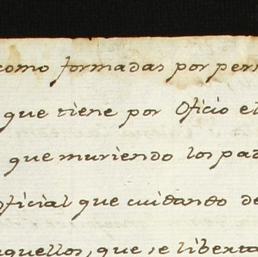 como formadas por per
que tiene por Oficio el
que muriendo los pad
oficial que cuidando de
aquellos, que se liberta